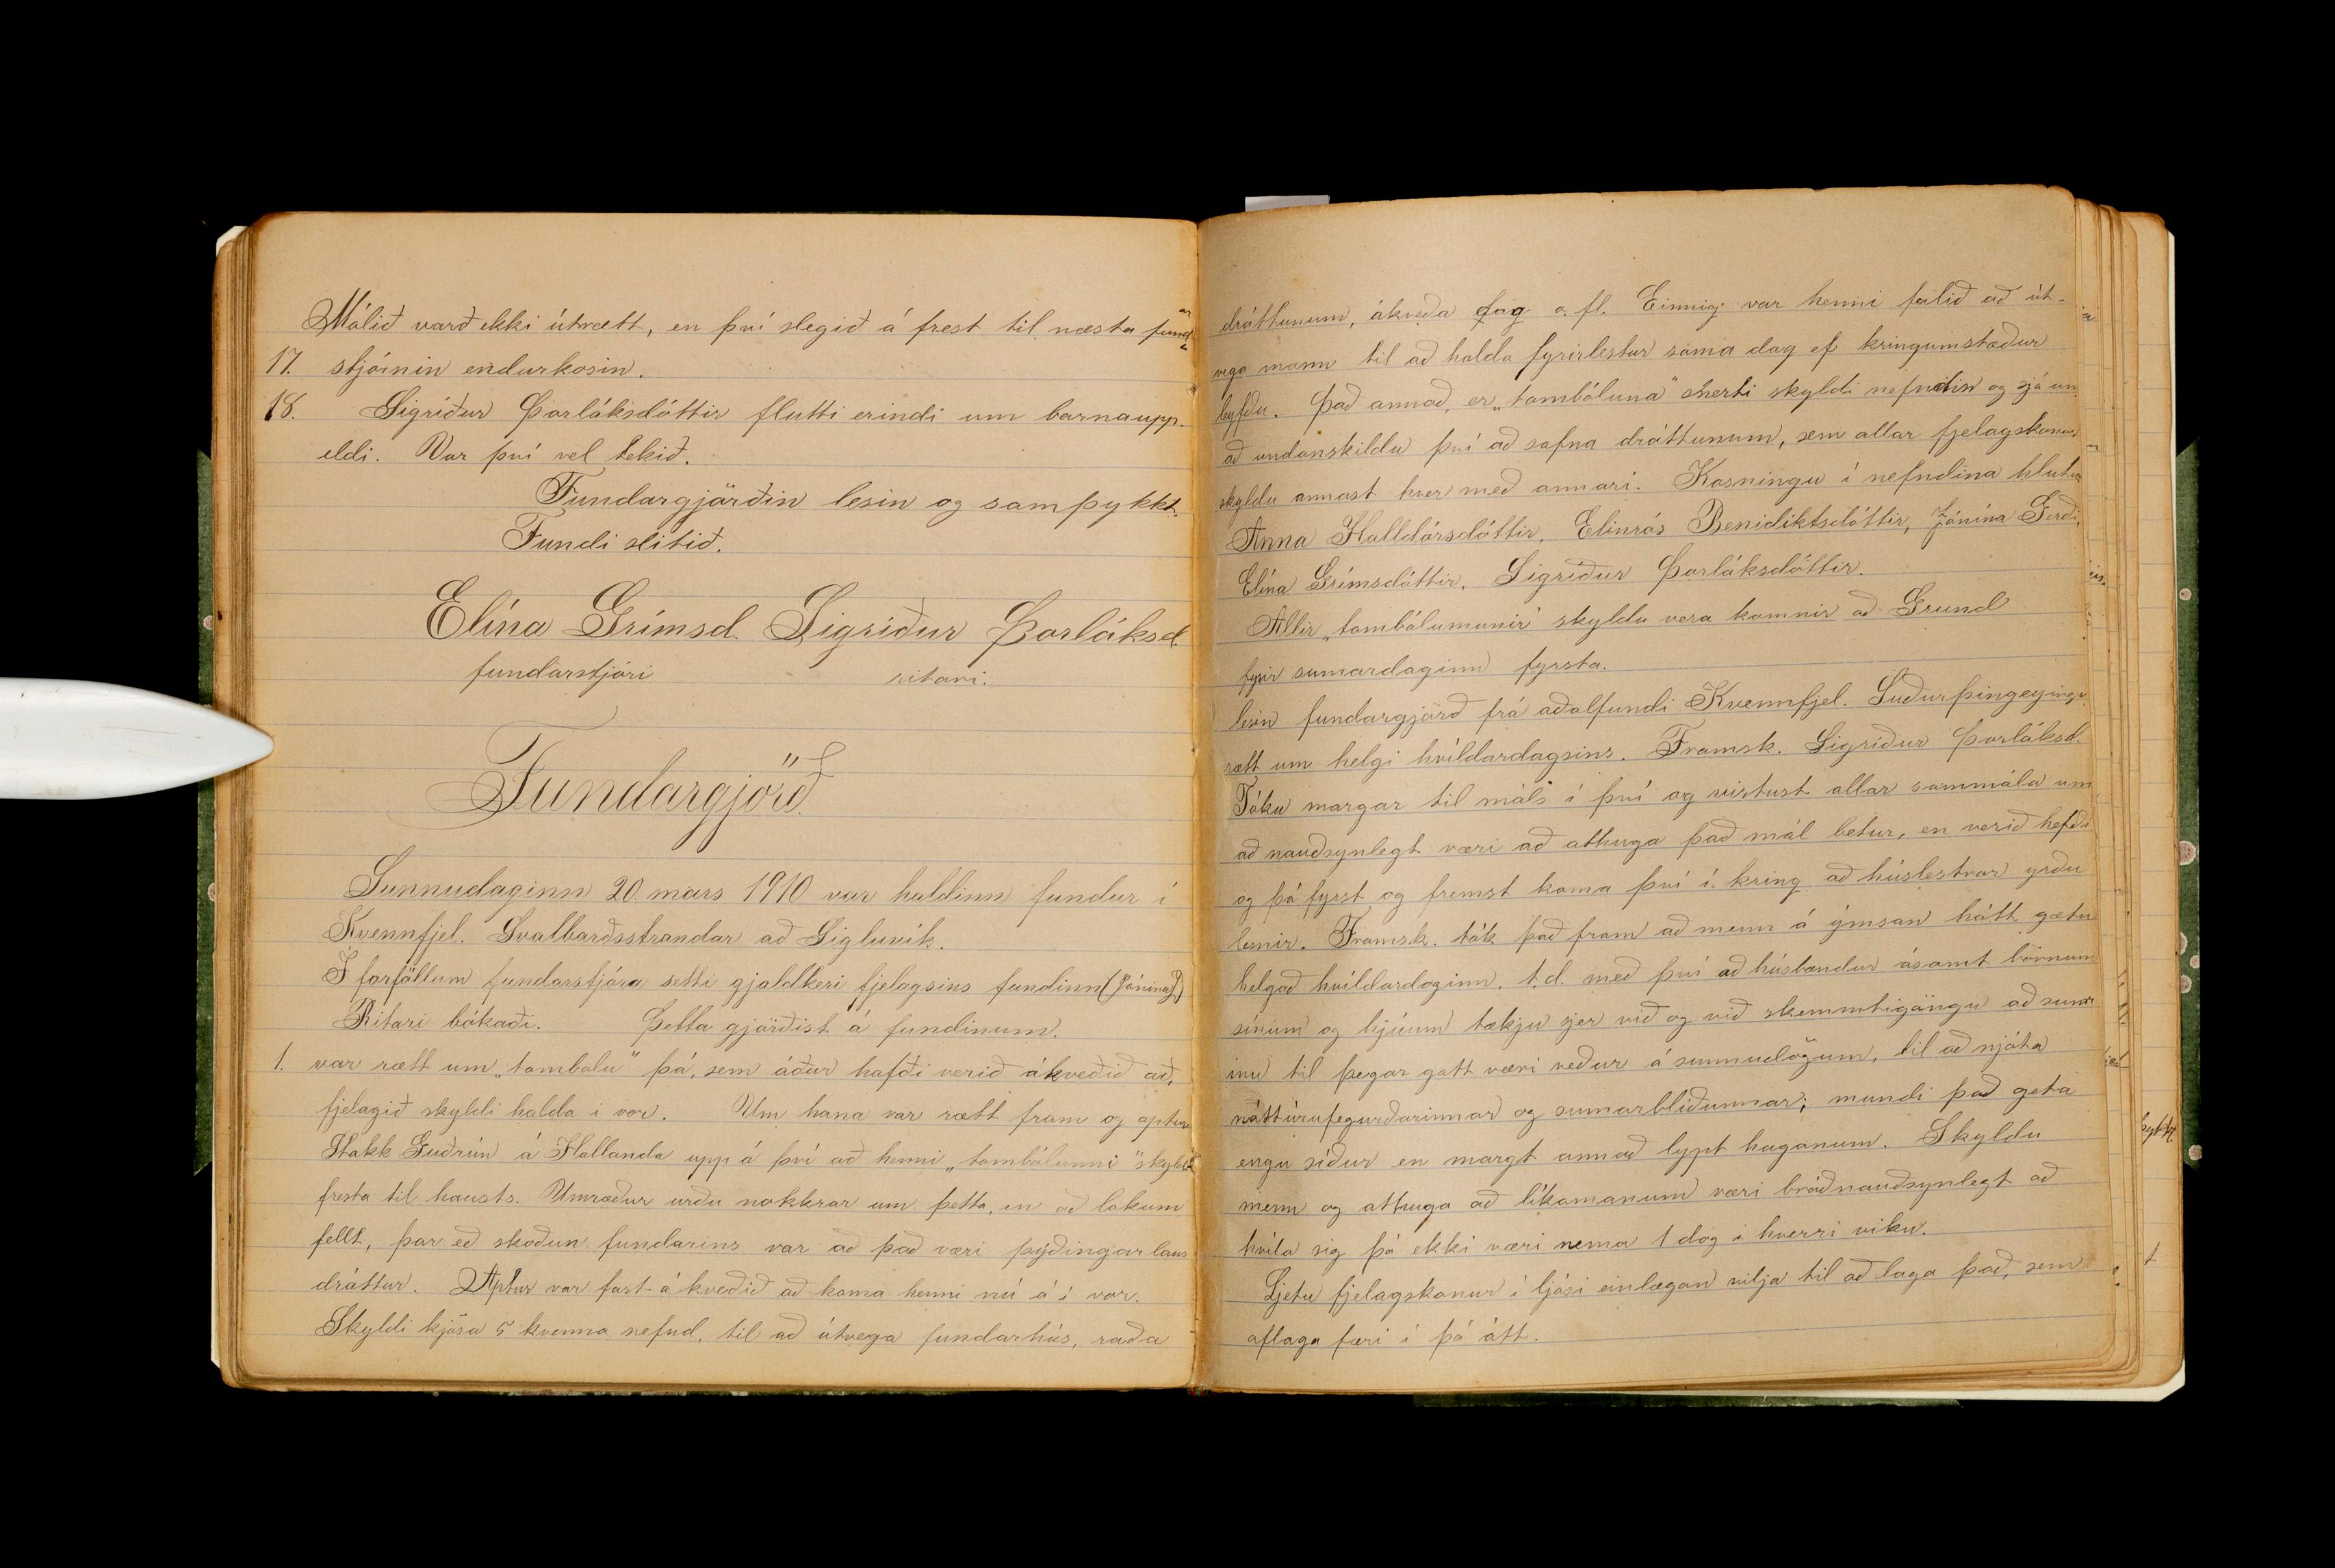 Málið varð ekki útrætt, en því slegið á frest til næsta fund
ar
17. stjórnin endurkosin.
18. Sigríður Þorláksdóttir flutti erindi um barnaupp-
eldi. Var því vel tekið.
Fundargjörðin lesin og samþykkt.
Fundi slitið.
Elína Grímsd. Sigríður Þorláksd.
fundarstjóri ritari.
Fundargjörð.
Sunnudaginn 20. mars 1910 var haldinn fundur í
Kvennfjel. Svalbarðsstrandar að Sigluvík.
Í forföllum fundarstjóra setti gjaldkeri fjelagsins fundinn (Jónína)
Ritari bókaði. Þetta gjörðist á fundinum.
1. var rætt um „tombolu" þá, sem áður hafði verið ákveðið að,
fjelagið skyldi halda i vor. Um hana var rætt fram og aptur
Stakk Guðrún á Hallanda upp á því að henni „tombólunni" skyldi
fresta til hausts. Umræður urðu nokkrar um þetta, en að lokum
fellt, þar eð skoðun fundarins var að það væri þýðingarlaus
dráttur. Aptur var fast-ákveðið að koma henni nú á í vor.
Skyldi kjósa 5 kvenna nefnd, til að útvega fundarhús, raða
dráttunum, ákveða dag o. fl. Einnig var henni falið að út-
vega mann til að halda fyrirlestur sama dag ef kringumstæður
leyfðu. Það annað, er „tombóluna" snerti skyldi nefndin og sjá um
að undanskildu því að safna dráttunum, sem allar fjelagskonur
skyldu annast hver með annari. Kosningu í nefndina hlutu
Anna Halldórsdóttir, Elinrós Benidiktsdóttir, Jónína Gerði,
Elína Grímsdóttir, Sigríður Þorláksdóttir.
Allir „tombólumunir" skyldu vera komnir að Grund
fyrir sumardaginn fyrsta.
lesin fundargjörð frá aðalfundi Kvennfjel. Suðurþingeyinga
rætt um helgi hvíldardagsins. Framsk. Sigríður Þorláksd.
Tóku margar til máls í því og virtust allar sammála um
að nauðsynlegt væri að athuga það mál betur, en verið hefði
og þá fyrst og fremst koma því í kring að húslestrar yrðu
lesnir. Framsk. tók það fram að menn á ýmsan hátt gætu
helgað hvíldardaginn, t.d. með því að húsbændur ásamt börnum
sínum og hjúum tækju sjer við og við skemmtigöngu að sumr
inu til þegar gott væri veður á sunnudögum, til að njóta
náttúrufegurðarinnar og sumarblíðunnar; mundi það geta
engu síður en margt annað lypt huganum. Skyldu
menn og athuga að líkamanum væri bráðnauðsynlegt að
hvíla sig þó ekki væri nema 1 dag í hverri viku.
Ljetu fjelagskonur í ljósi einlægan vilja til að laga það, sem
aflaga færi í þá átt.